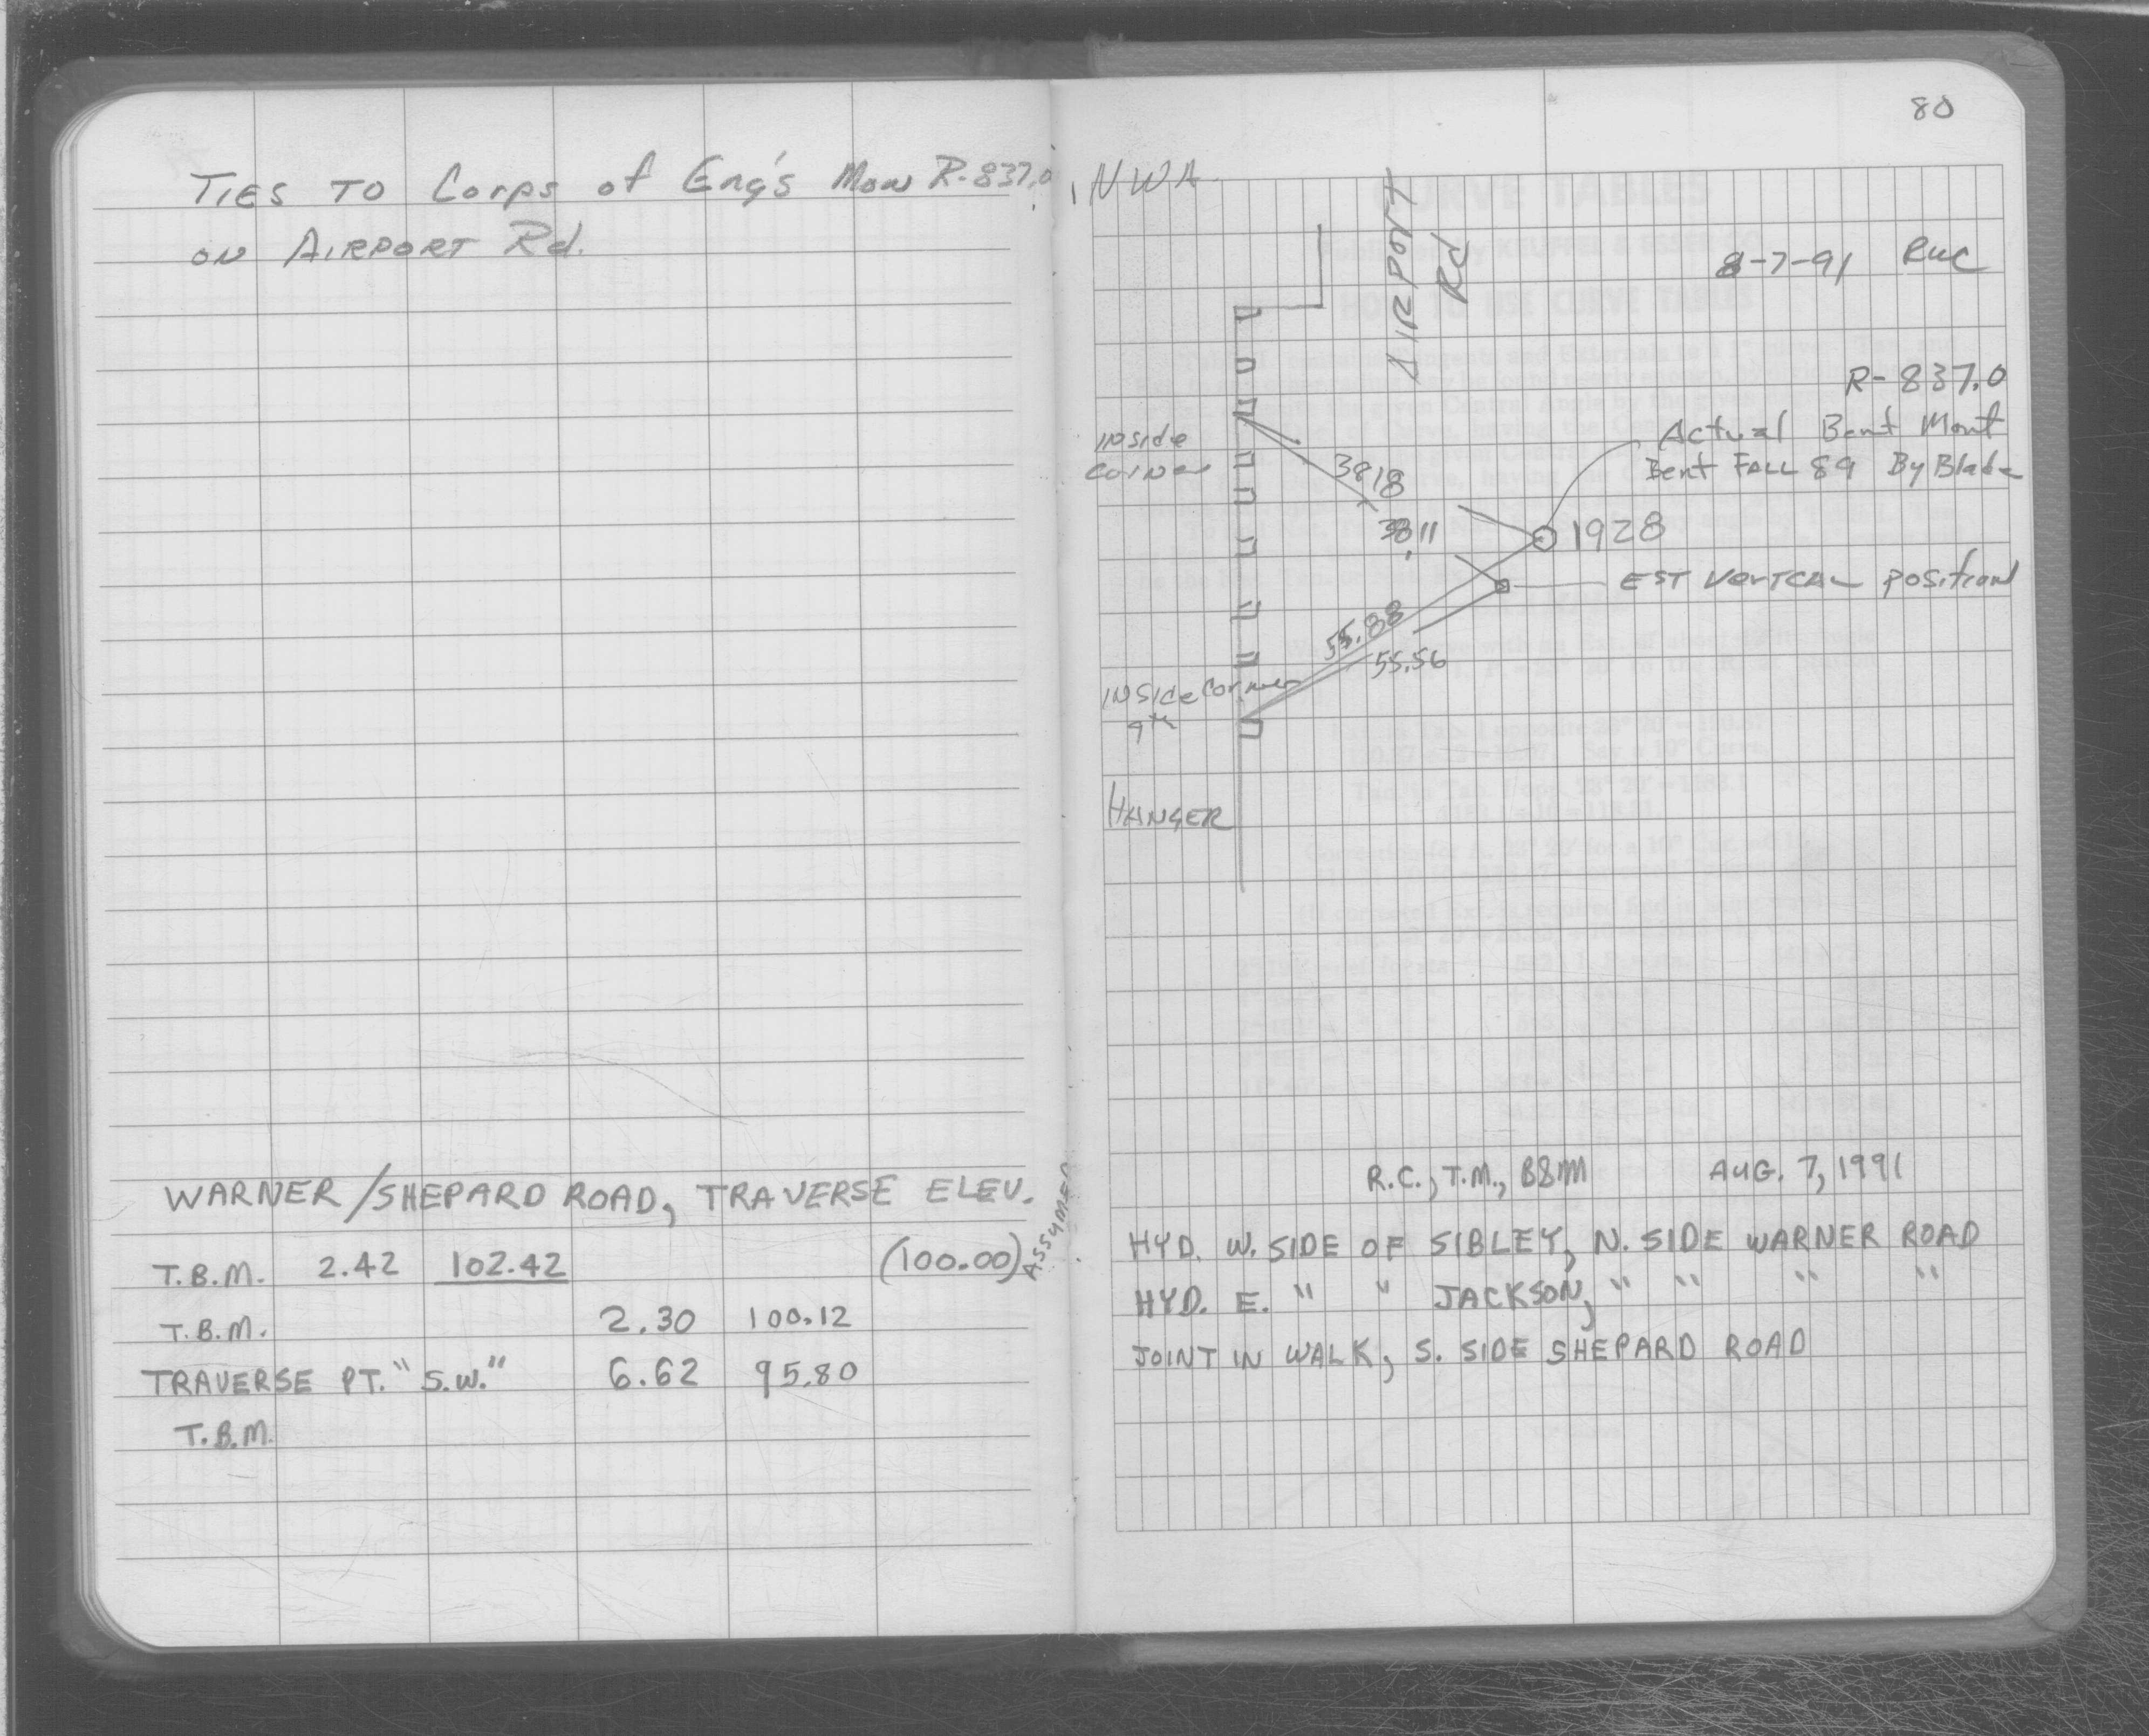 TIES TO Corps of Eng's Mon R-837.0
ON AIRPORT Rd.
WARNER/SHEPARD ROAD, TRAVERSE ELEV.
T.B.M. 2.42 102.42 (100.00) ASSUMED
T.B.M. 2.30 100.12
TRAVERSE PT. "S.W." 6.62 95.80
T.B.M.
80
NWA
AIRPORT
Rd
8-7-91 RWC
R-837.0
Actual Bent Mont
Bent FALL 89 By Blade
INSide
COrNer
38.18
38.11
1928
EST VerTCAL POSition
55.88
55.56
INSide Corner
9th
HANGER
R.C., T.M., B&M AUG. 7, 1991
HYD. W. SIDE OF SIBLEY, N. SIDE WARNER ROAD
HYD. E. " " JACKSON, " " " "
JOINT IN WALK, S. SIDE SHEPARD ROAD